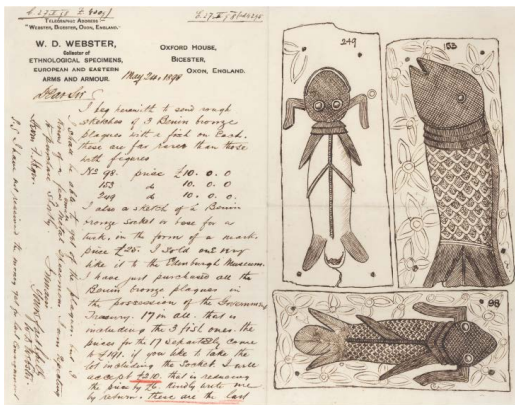 TELEGRAPHIC ADDRESS—
"WEBSTER, BICESTER, OXON, ENGLAND."
W. D. WEBSTER,
Collector of
ETHNOLOGICAL SPECIMENS,
EUROPEAN AND EASTERN
ARMS AND ARMOUR.
OXFORD HOUSE,
BICESTER,
OXON, ENGLAND.
May 1898
Dear Sir
I beg herewith to send rough
sketches of 3 Benin bronze
plaques with a fish on each.
these are far rarer than those
with figures
No 98. price £10. 0. 0
153 do 10. 0. 0
249 do 10. 0. 0
I also a sketch of a Benin
bronze socket or base for a
tusk, in the form of a mask.
price £25. I sold one very
like it to the Edinburgh Museum.
I have just purchased all the
Benin bronze plaques in
the possession of the Governm
Treasury. 17 in all. that is
including the 3 fish ones. the
prices for the 17 separately come
to £191. if you like to take the
lot including the socket I will
accept £210. that is reducing
the price by £6. Kindly write me
by return. these are the last
249
153
98